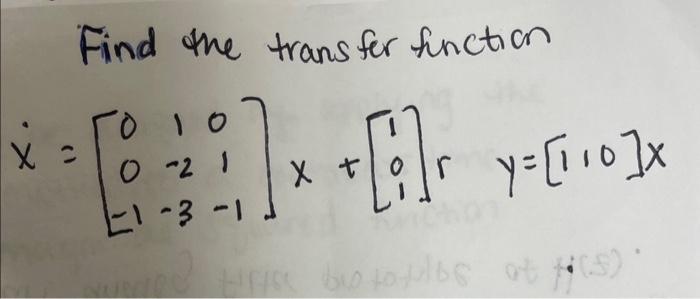 Find the transfer function
ẋ = [0 1 0; 0 -2 1; -1 -3 -1] x + [1; 0; 1] r y = [1 1 0] x